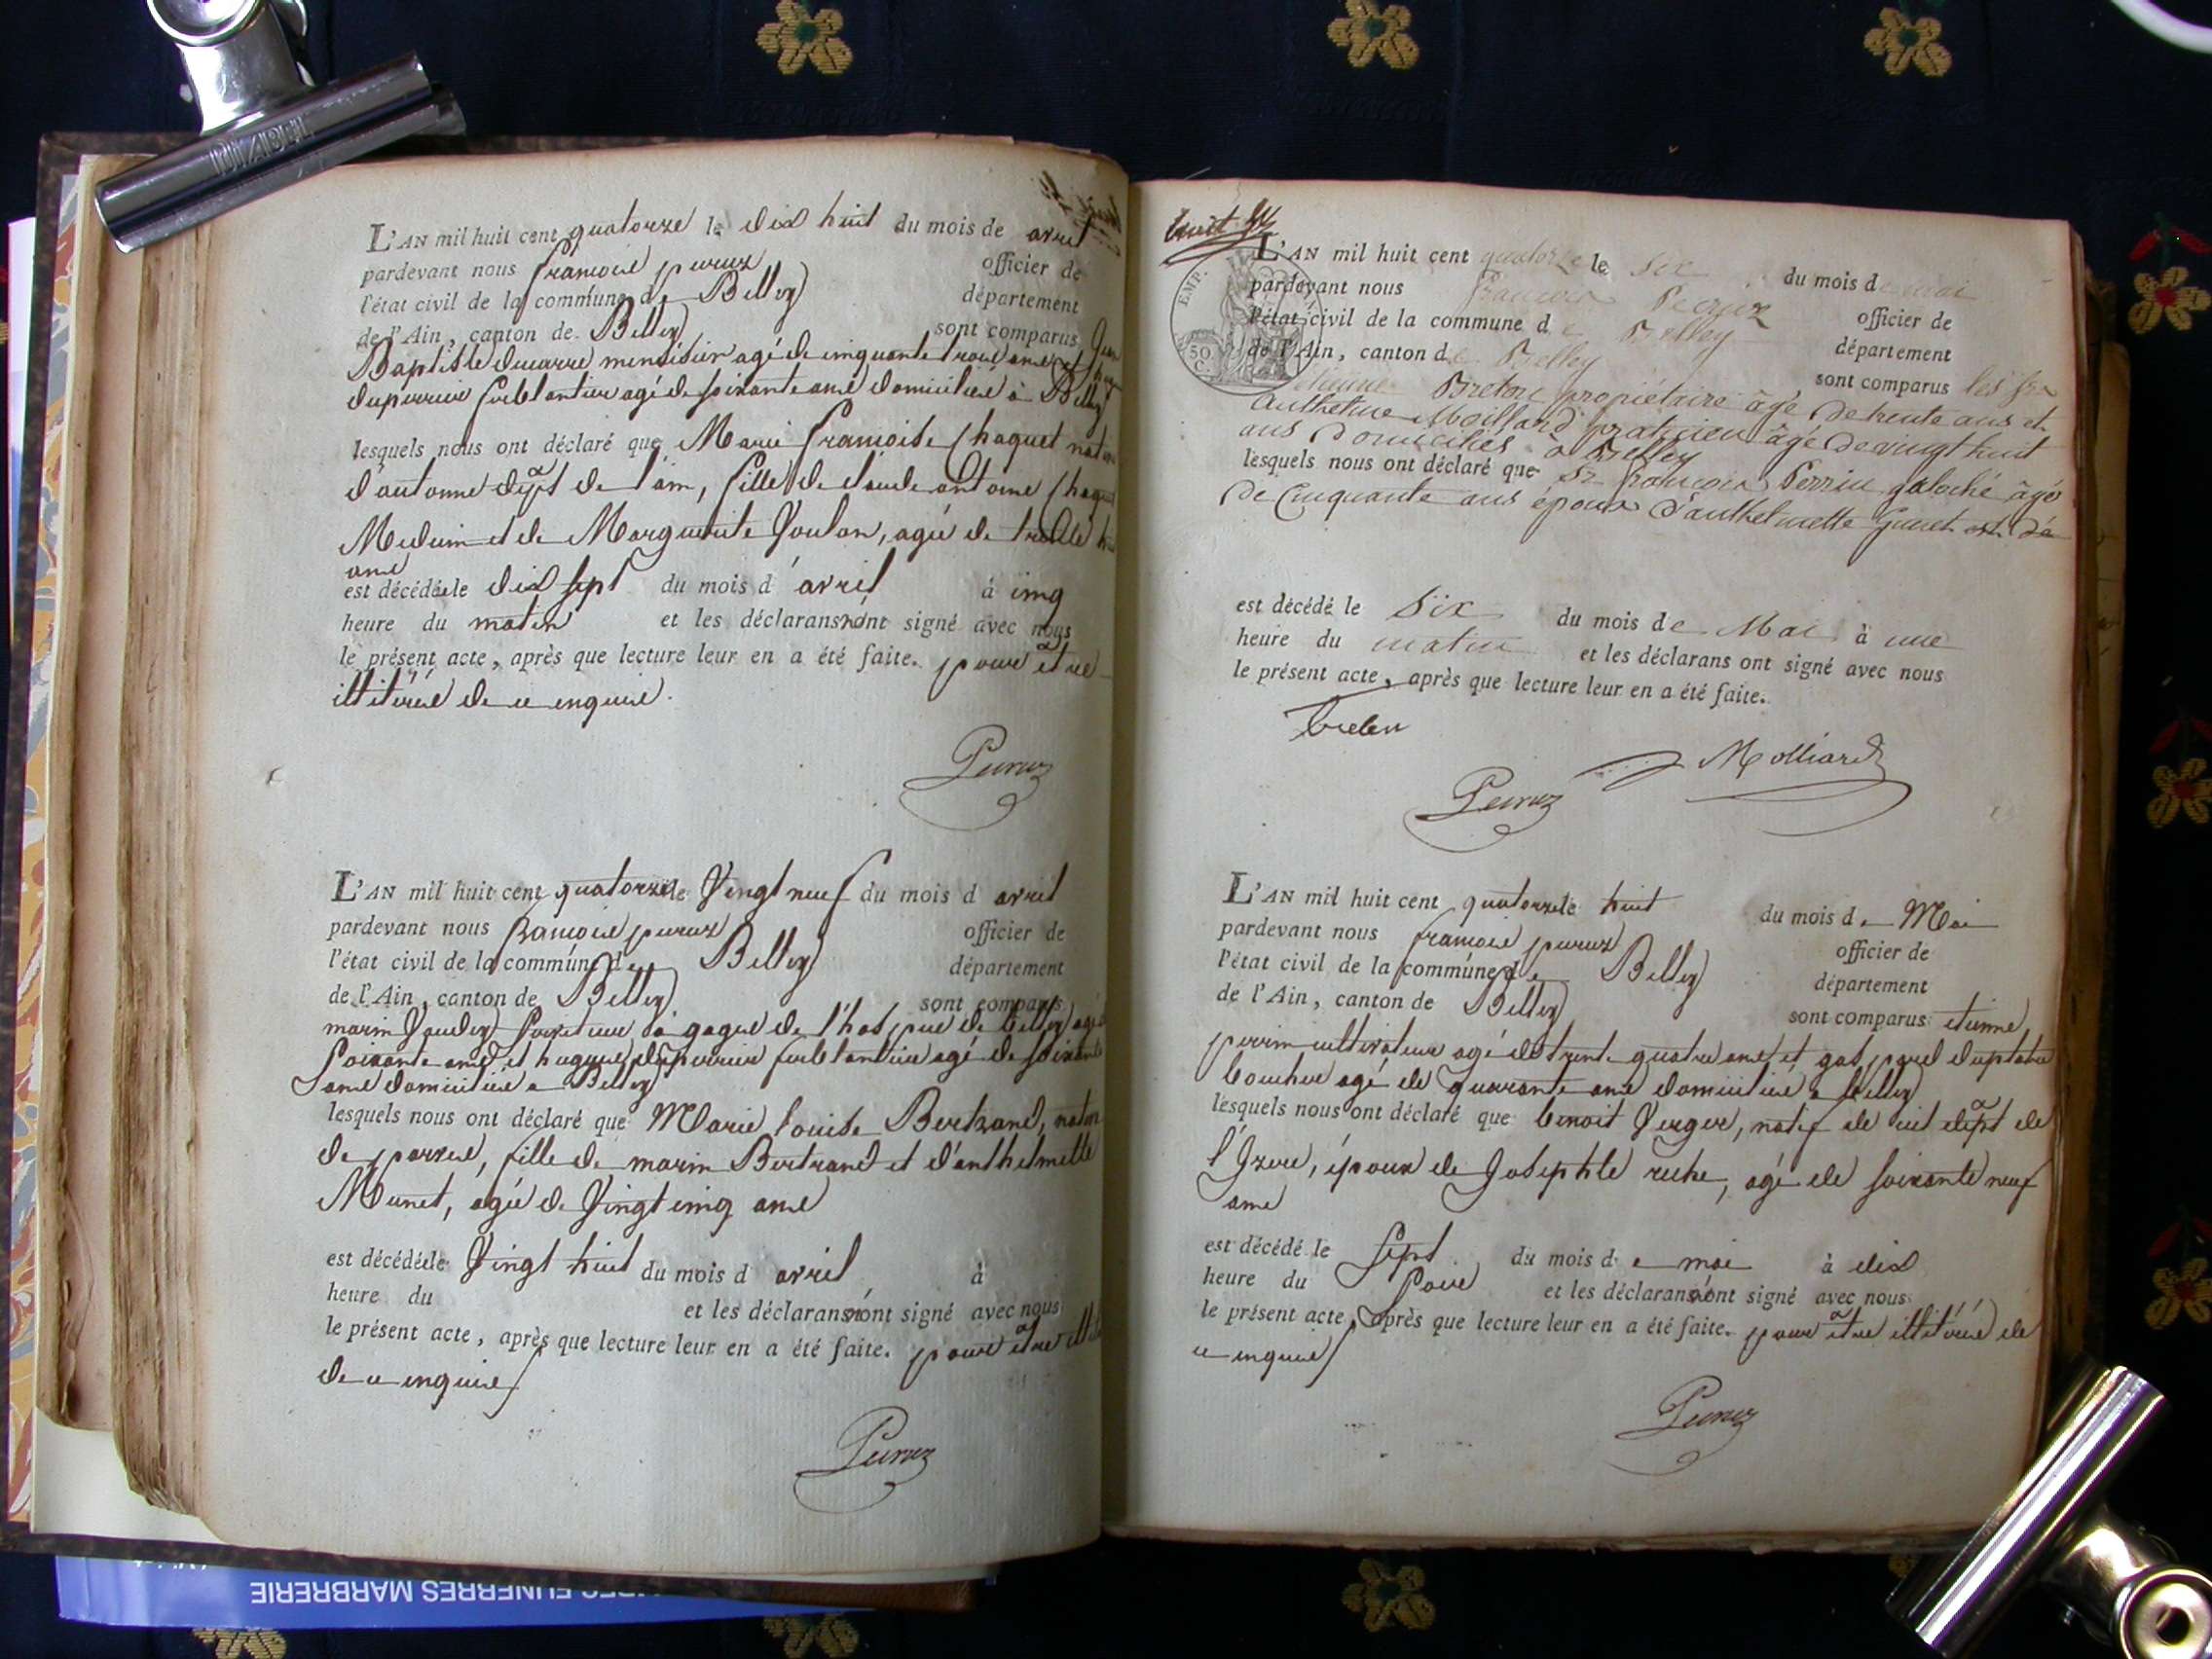 DIABEL
L'AN mil huit cent quatorze le dix huit du mois de avril
pardevant nous françois peruz officier de
l'état civil de la commune de Belley département
de l'Ain, canton de Belley sont comparus Jean
Baptiste ducarre menuisier agé de cinquante trois ans et
duperrier ferblantier agé de soixante ans domiciliés à Belley
lesquels nous ont déclaré que Marie françoise Chaquet
d'autonne dept de l'ain, fille de claude antoine
Medecin et de Marguerite Goulon, agée de
ans
est décédée le dix sept du mois d'avril à cinq
heure du matin et les déclarans n'ont signé avec nous
le présent acte, après que lecture leur en a été faite. pour etre
illitérés de ce enquis.
Peruz
L'AN mil huit cent quatorze le Vingt neuf du mois d avril
pardevant nous françois peruz officier de
l'état civil de la commune de Belley département
de l'Ain, canton de Belley sont comparus
marin à gages de l'hospice de belley agé
soixante ans et hugues duperrier ferblantier agé de soixante
ans domiciliés a Belley
lesquels nous ont déclaré que Marie louise Bertrand,
de parves, fille de marin Bertrand et d'anthelmette
Munet, agée de Vingt cinq ans
est décédée le Vingt huit du mois d avril à
heure du et les déclarans n'ont signé avec nous
le présent acte, après que lecture leur en a été faite. pour etre
de ce enquis
Peruz
huit
EMP.
50
C.
L'AN mil huit cent quatorze le six du mois de mai
pardevant nous françois Peruz officier de
l'état civil de la commune de Belley département
de l'Ain, canton de Belley sont comparus les
étienne Breton propriétaire âgé de trente ans et
Anthelme Molliard praticien âgé de vingt huit
ans domiciliés à Belley
lesquels nous ont déclaré que Sr françois Perrin galoché âgé
de Cinquante ans epoux d'anthelmette est
est décédé le Six du mois de Mai à une
heure du matin et les déclarans ont signé avec nous
le présent acte, après que lecture leur en a été faite.
breton
Molliard
Peruz
L'AN mil huit cent quatorze le huit du mois de Mai
pardevant nous françois peruz officier de
l'état civil de la commune de Belley département
de l'Ain, canton de Belley sont comparus etienne
perrin cultivateur agé de trente quatre ans et gaspard
boucher agé de quarante ans domiciliés a belley
lesquels nous ont déclaré que benoit Verger, natif de dept de
l'Izere, époux de Josephte agé de soixante neuf
ans
est décédé le Sept du mois de mai à dix
heure du Soir et les déclarans n'ont signé avec nous
le présent acte, après que lecture leur en a été faite. pour etre illitérés de
ce enquis
Peruz
FUNEBRES MARBRERIE